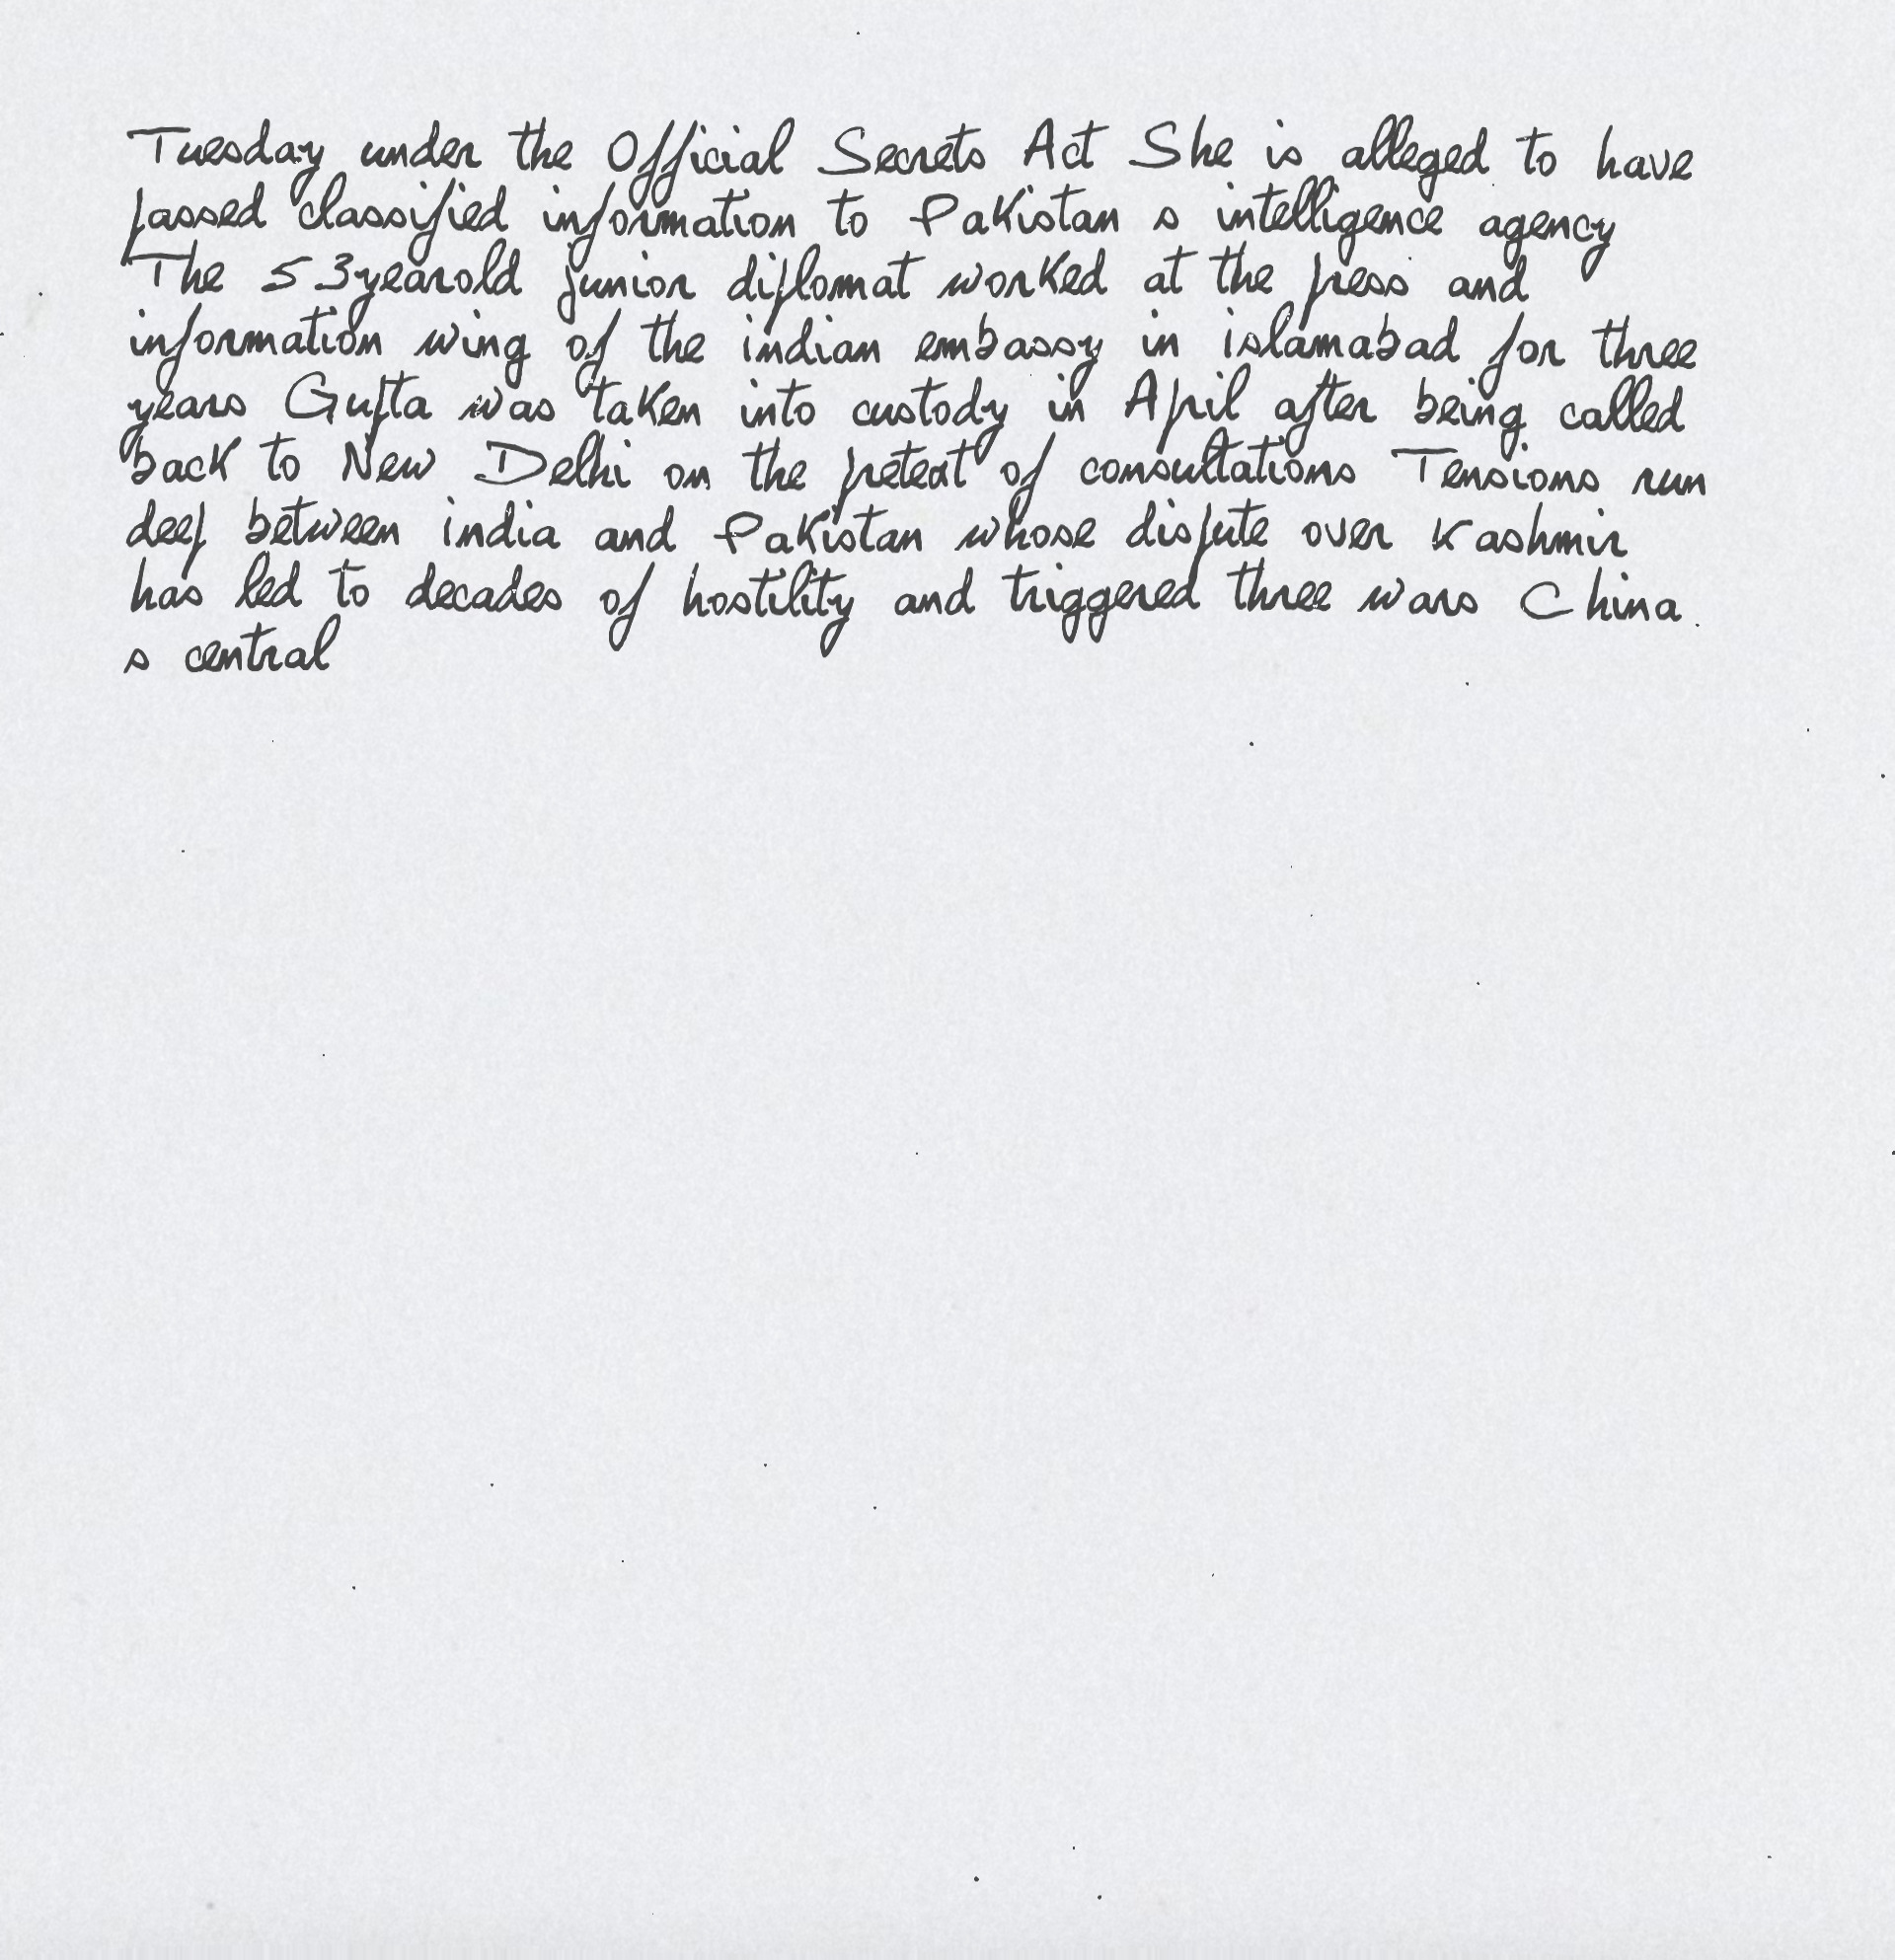 Tuesday under the Official Secrets Act She is alleged to have
passed classified information to Pakistan s intelligence agency
The 53yearold junior diplomat worked at the press and
information wing of the indian embassy in islamabad for three
years Gupta was taken into custody in April after being called
back to New Delhi on the pretext of consultations Tensions run
deep between india and Pakistan whose dispute over Kashmir
has led to decades of hostility and triggered three wars China
s central